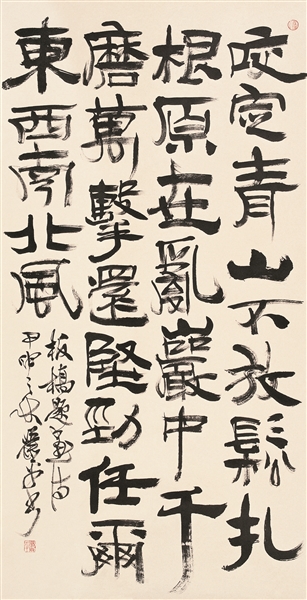 咬定青山不放鬆扎
根原在亂巖中千
磨萬擊還堅勁任爾
東西南北風
板橋題畫詩
甲申之秋